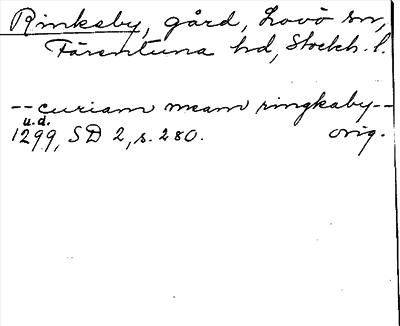 Rinkeby, gård, Lovö sn,
Färentuna hd, Stockh. l.
-- curiam meam ringkaby --
u.d.
1299, SD 2, s. 280. orig.